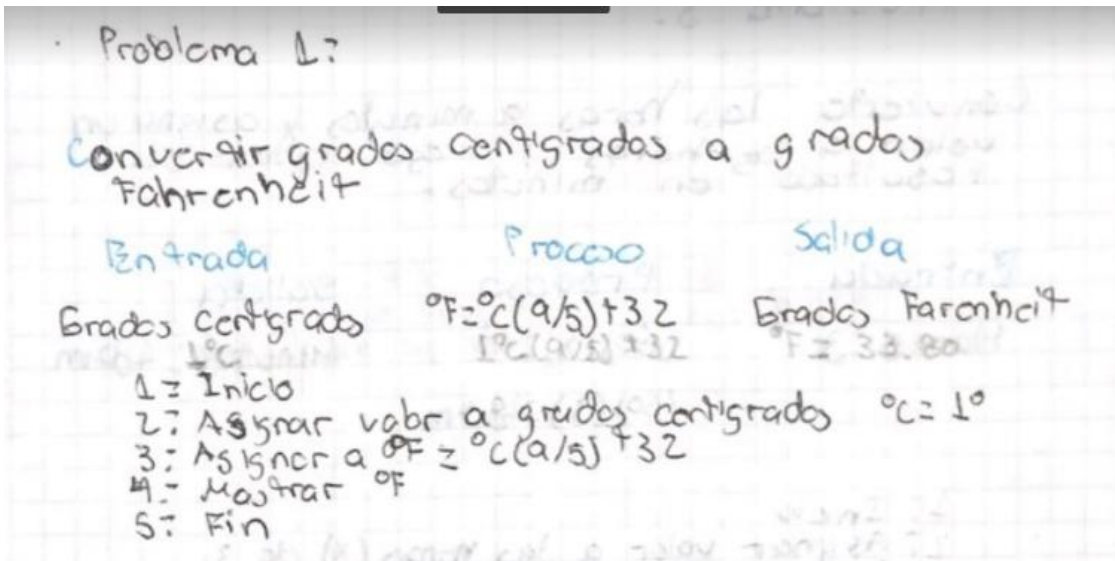 Problema 1:
Convertir grados centigrados a grados
Fahrenheit
Entrada Proceso Salida
Grados centigrados °F=°C(9/5)+32 Grados Farenheit
1°C 1°C(9/5)+32 °F = 33.80
1= Inicio
2: Asignar valor a grados centigrados °C= 1°
3: Asignar a °F = °C(9/5)+32
4.- Mostrar °F
5: Fin